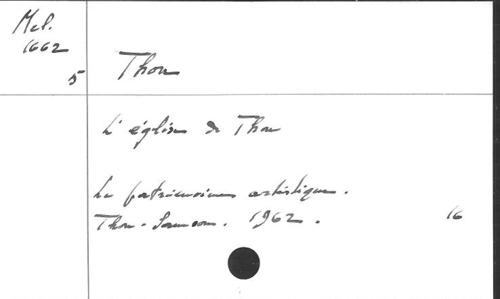 Mel.
1662
5
Thon
L'église de Thon
Le patrimoine artistique.
Thon-Samson. 1962.
16